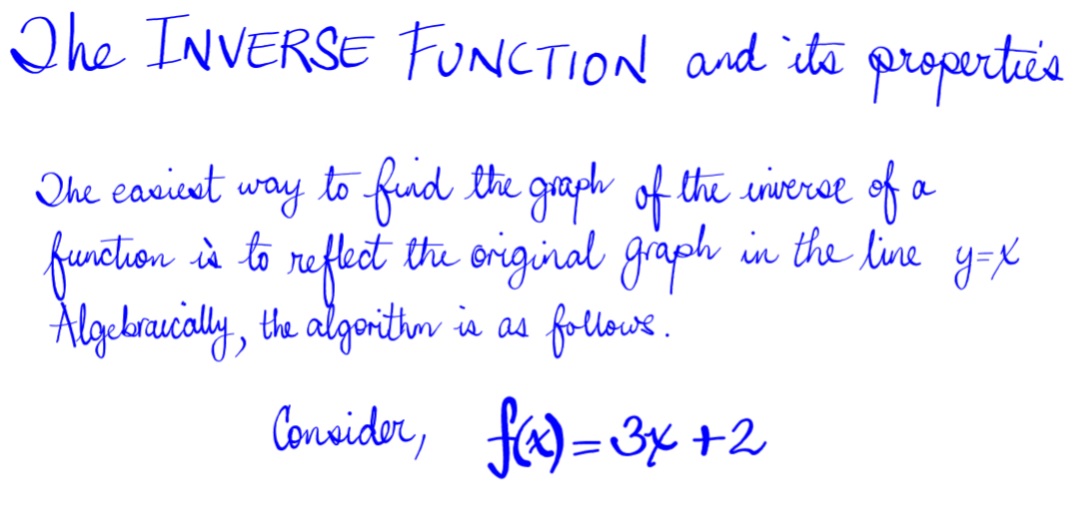 The INVERSE FUNCTION and its properties
The easiest way to find the graph of the inverse of a
function is to reflect the original graph in the line y=x
Algebraically, the algorithm is as follows.
Consider, f(x)=3x+2